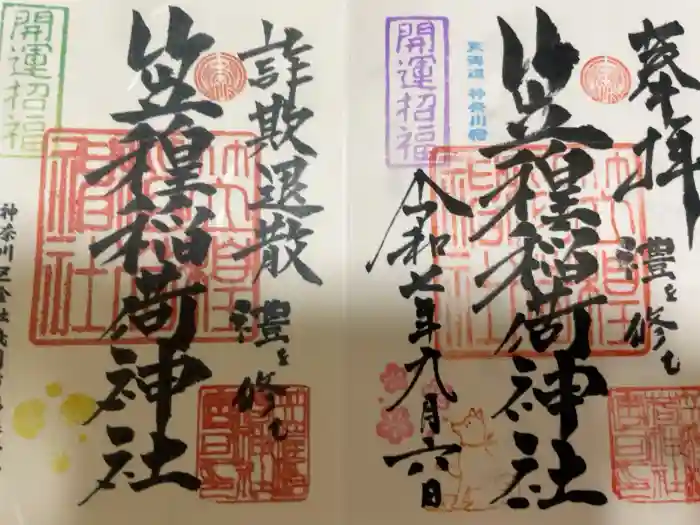 奉拝
禮を修む
笠䅣稲荷神社
東海道 神奈川宿
開運招福
令和七年九月六日
詐欺退散
禮を修む
笠䅣稲荷神社
開運招福
神奈川区